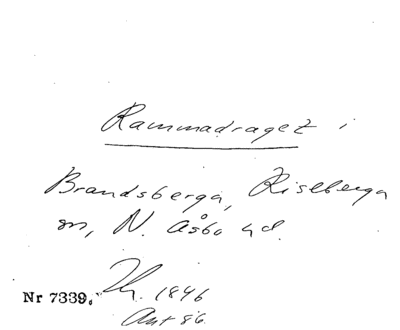 Rammadraget i
Brandsberga, Riseberga
sn, N. Åsbo hd.
Nr 7339. Th. 1846
Ant 86.